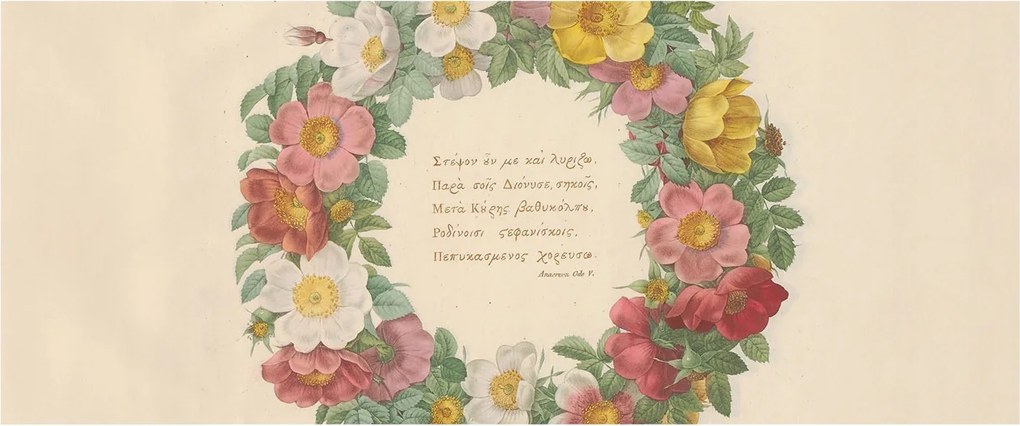 Στέψον ȣ̓ν με καὶ λυρίζω,
Παρὰ σοῖς Διόνυσε, σηκοῖς,
Μετὰ Κȣ́ρης βαθυκόλπȣ,
Ροδίνοισι ϛεφανίσκοις,
Πεπυκασμενος χορεύσω.
Anacreon Ode V.